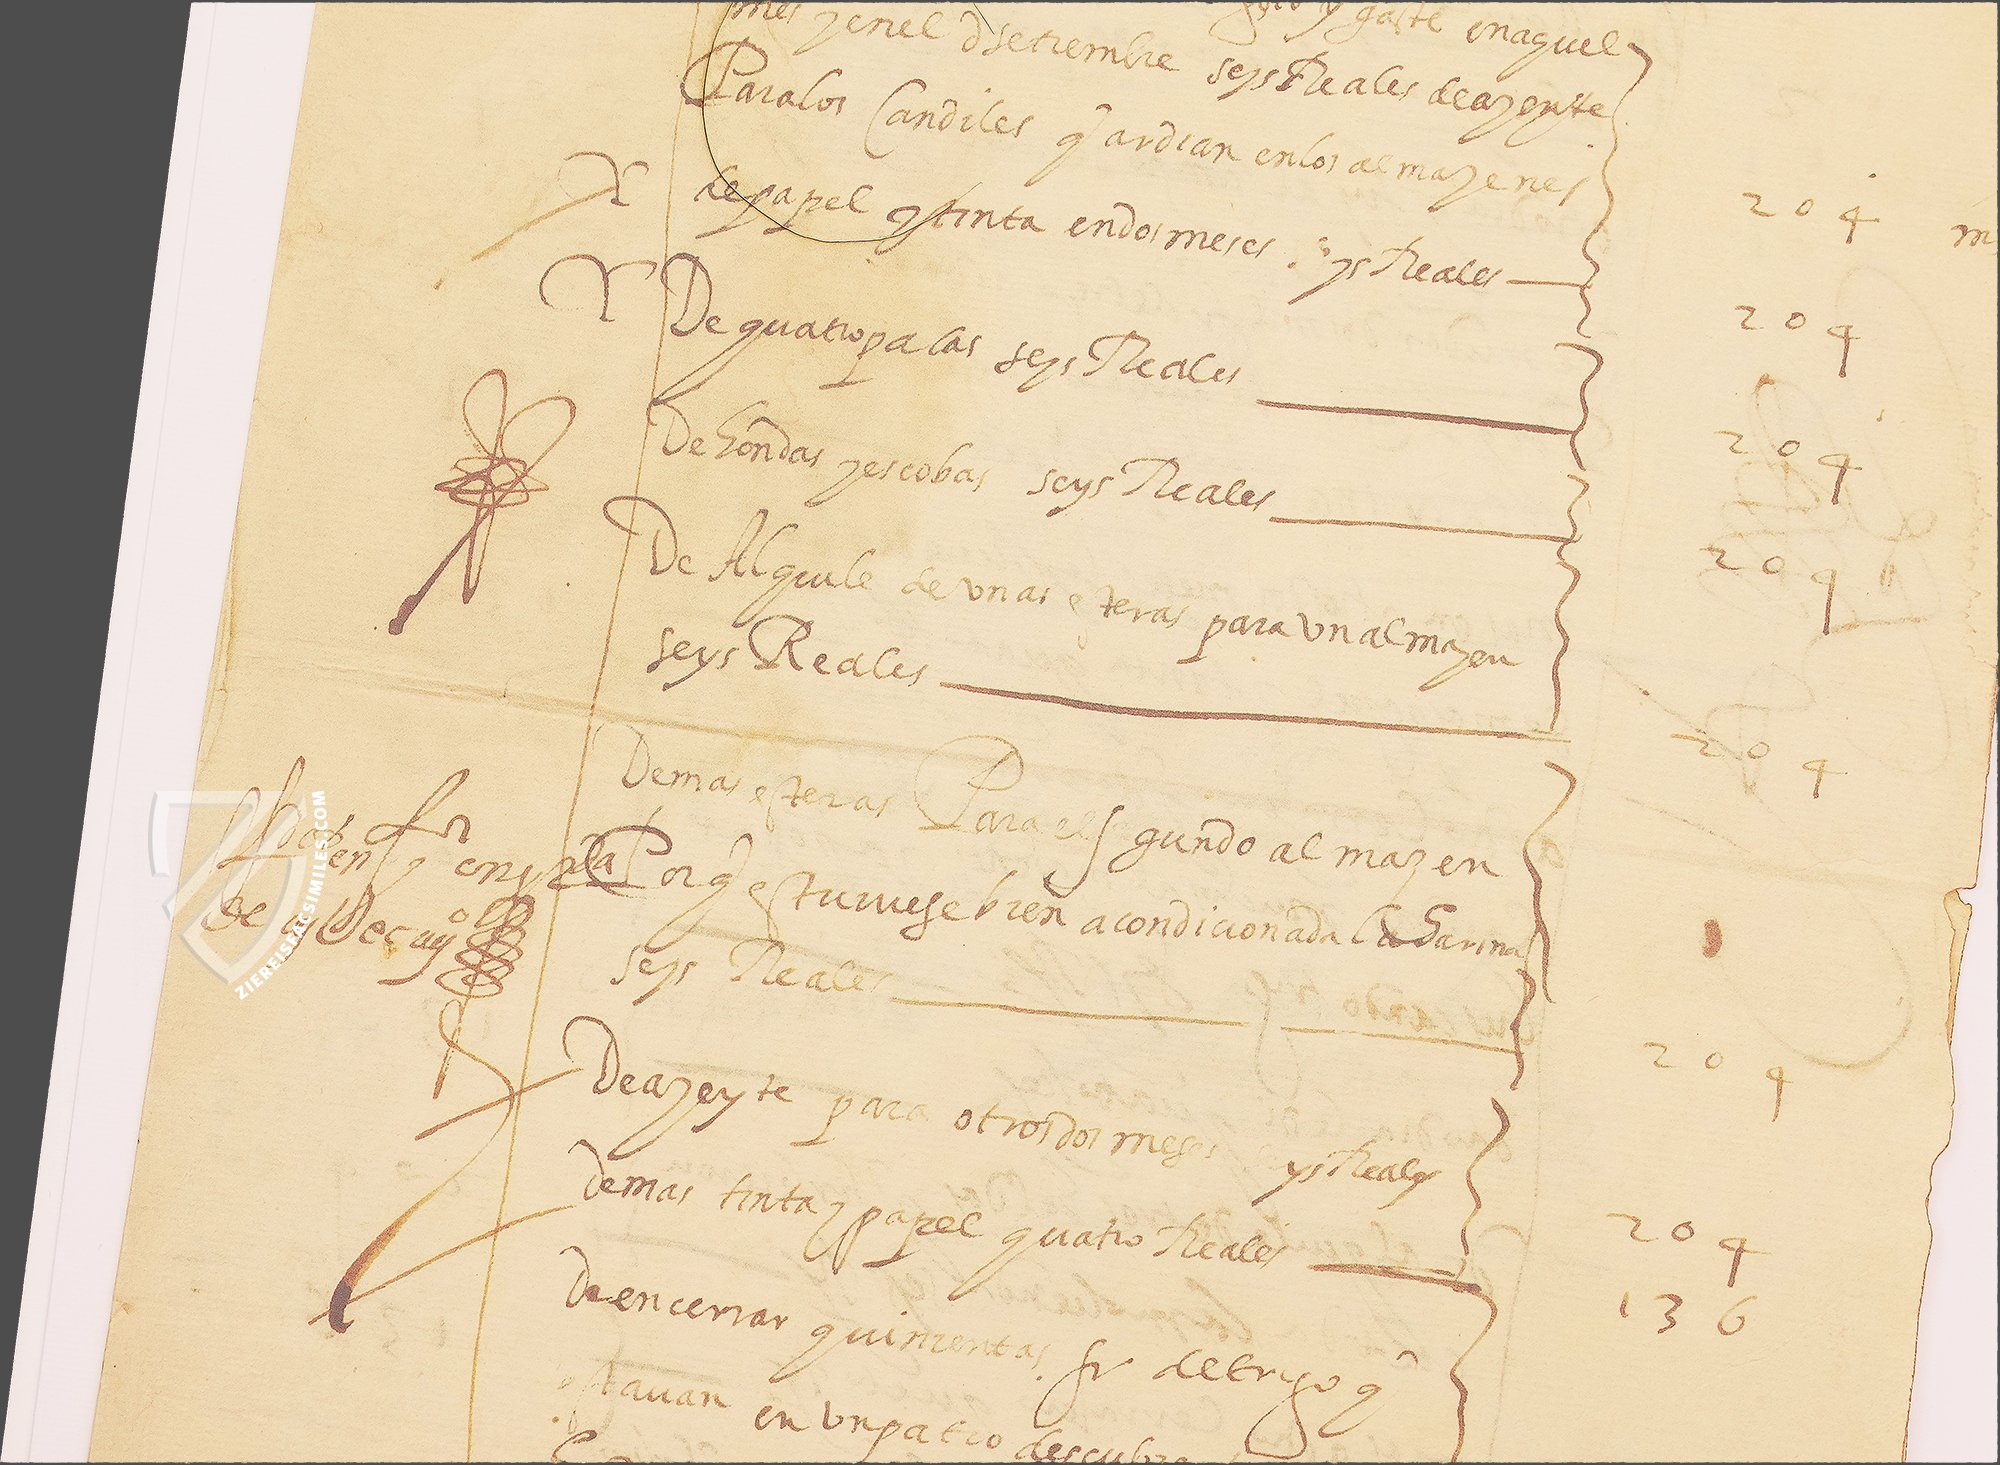 mes y en el d setiembre seys Reales de azeyte
y gaste en aquel
Para los Candiles q̄ ardian en los almazenes
204
de papel y tinta en dos meses seys Reales
204
De quatro palas seys Reales
204
De hondas y escobas seys Reales
204
De Alquile de unas esteras para un almazen
seys Reales
204
De mas esteras Para el segundo almazen
Por q̄ estuuiese bien acondicionada la harina
seys Reales
204
De azeyte para otros dos meses seys Reales
204
de mas tinta y papel quatro Reales
136
de encerrar quinientas fr de trigo q̄
estauan en un patio descubier
ZIEREISFACSIMILES.COM